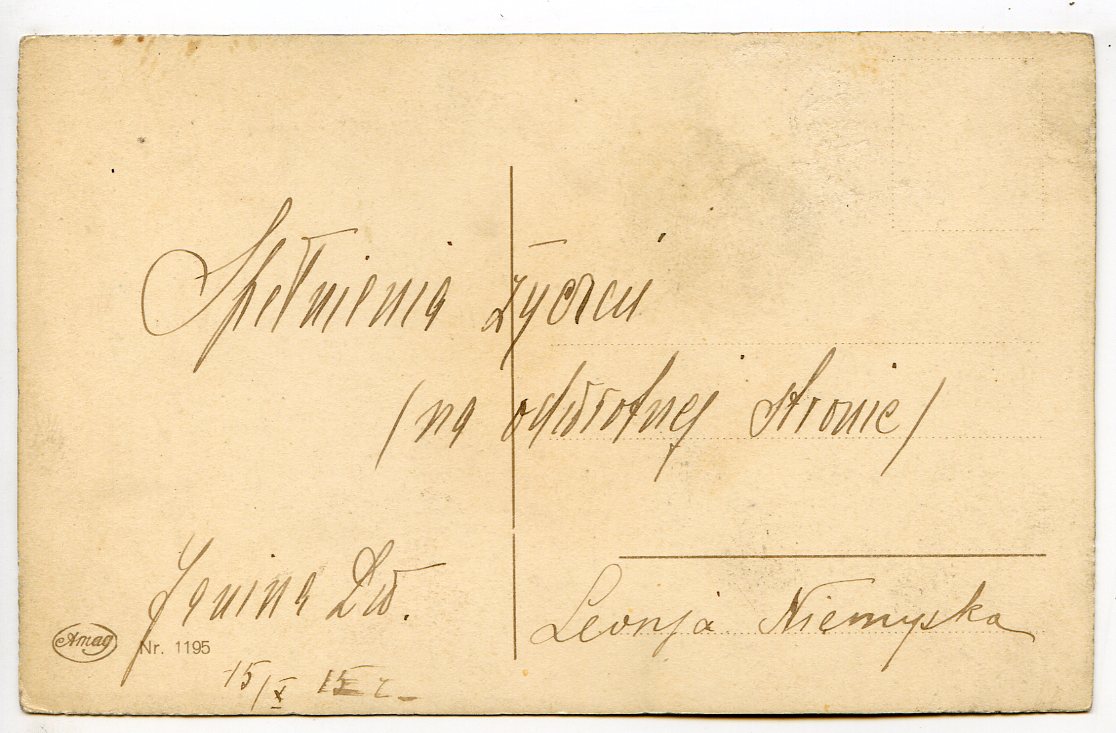 Spełnienia życzeń
(na odwrotnej stronie)
Janina Dw.
Amag
Nr. 1195
15/X 15 r.
Leonja Niemyska